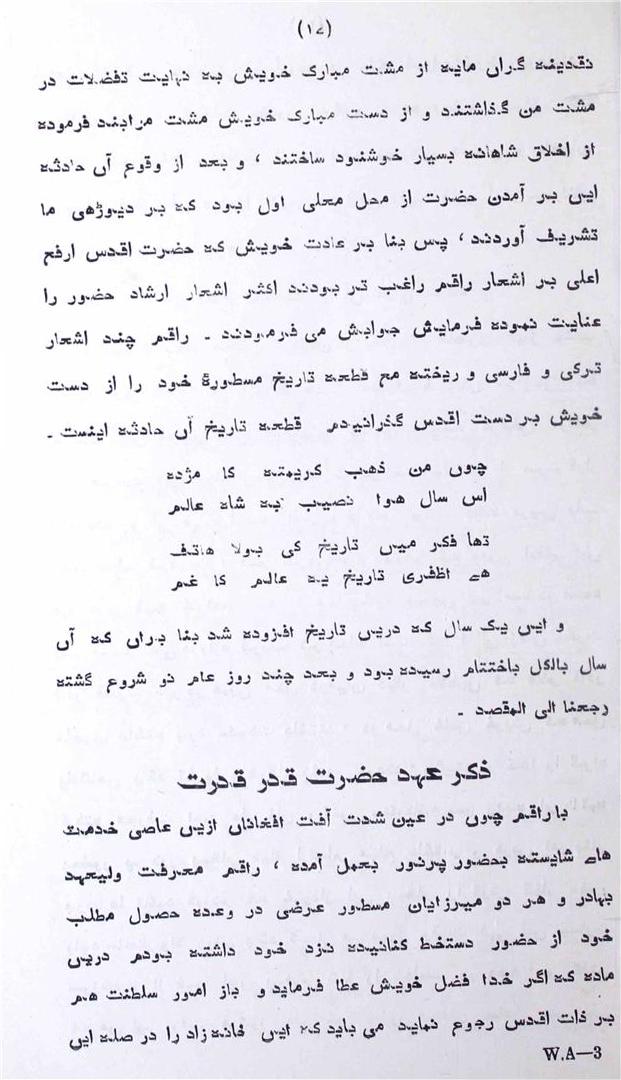 (۱۷)
نقدینہ گراں مایہ از مشت مبارک خویش بہ نہایت تفضلات در
مشت من گذاشتند و از دست مبارک خویش مشت مرابند فرمودہ
از اخلاق شاهانہ بسیار خوشنود ساختند ، و بعد از وقوع آں حادثہ
ایں بر آمدن حضرت از محل معلی اول بود کہ بر دیوڑھی ما
تشریف آوردند ، پس بنا بر عادت خویش کہ حضرت اقدس ارفع
اعلی بر اشعار راقم راغب تر بودند اکثر اشعار ارشاد حضور را
عنایت نمودہ فرمایش جوابش می فرمودند ۔ راقم چند اشعار
ترکی و فارسی و ریختہ مع قطعہ تاریخ مسطورۂ خود را از دست
خویش بر دست اقدس گذرانیدم قطعہ تاریخ آں حادثہ اینست ۔
چوں من ذهب کریمتہ کا مژدہ
اس سال هوا نصیب بہ شاہ عالم
تھا فکر میں تاریخ کی بولا هاتف
هے اظفری تاریخ یہ عالم کا غم
و ایں یک سال کہ دریں تاریخ افزودہ شد بنا براں کہ آں
سال بالکل باختتام رسیدہ بود و بعد چند روز عام نو شروع گشتہ
رجعنا الی المقصد ۔
ذکر عہد حضرت قدر قدرت
با راقم چوں در عین شدت آفت افغاناں ازیں عاصی خدمت
هاے شایستہ بحضور پرنور بعمل آمدہ ، راقم معرفت ولیعہد
بہادر و هر دو میرزایان مسطور عرضی در وعدہ حصول مطلب
خود از حضور دستخط کنانیدہ نزد خود داشتہ بودم دریں
مادہ کہ اگر خدا فضل خویش عطا فرماید و باز امور سلطنت هم
بر ذات اقدس رجوع نماید می باید کہ ایں خانہ زاد را در صلہ ایں
W.A—3